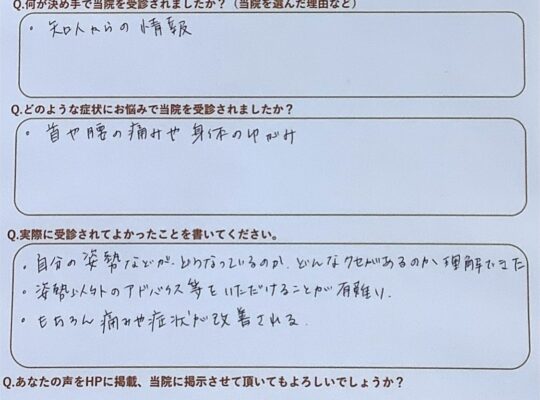 Q.何が決め手で当院を受診されましたか？（当院を選んだ理由など）
・知人からの情報
Q.どのような症状にお悩みで当院を受診されましたか？
・首や腰の痛みや身体のゆがみ
Q.実際に受診されてよかったことを書いてください。
・自分の姿勢などが、どうなっているのか、どんなクセがあるのか理解できた
・姿勢以外のアドバイス等をいただけることが有難い.
・もちろん痛みや症状が改善される.
Q.あなたの声をHPに掲載、当院に掲示させて頂いてもよろしいでしょうか？